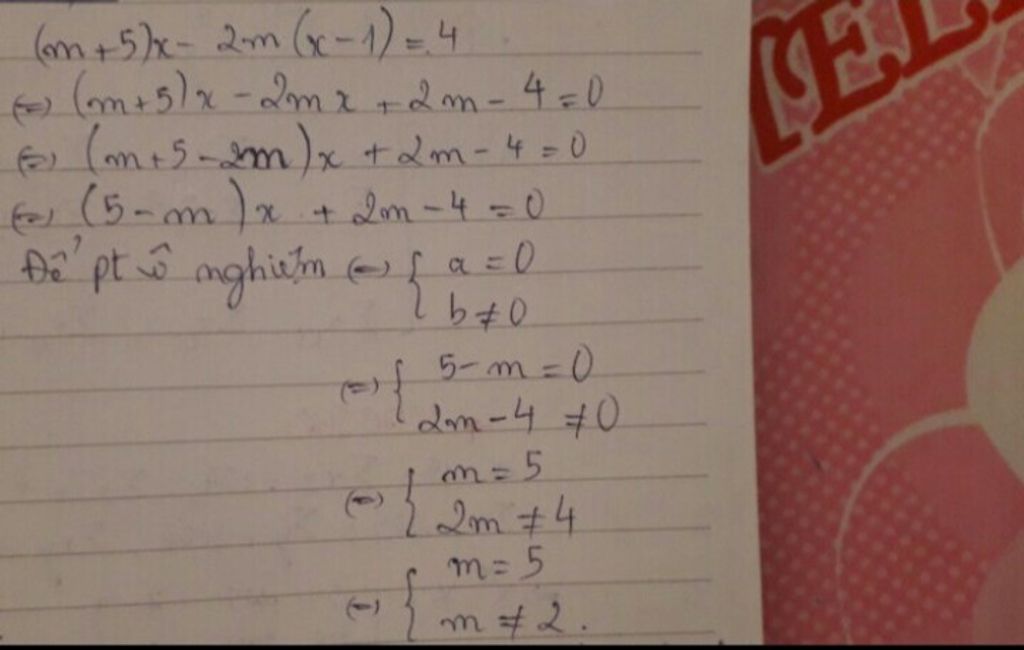 (m+5)x - 2m(x-1) = 4
(=) (m+5)x - 2mx + 2m - 4 = 0
(=) (m+5-2m)x + 2m - 4 = 0
(=) (5-m)x + 2m - 4 = 0
Để pt vô nghiệm (=) { a = 0
b ≠ 0
(=) { 5-m = 0
2m-4 ≠ 0
(=) { m = 5
2m ≠ 4
(=) { m = 5
m ≠ 2.